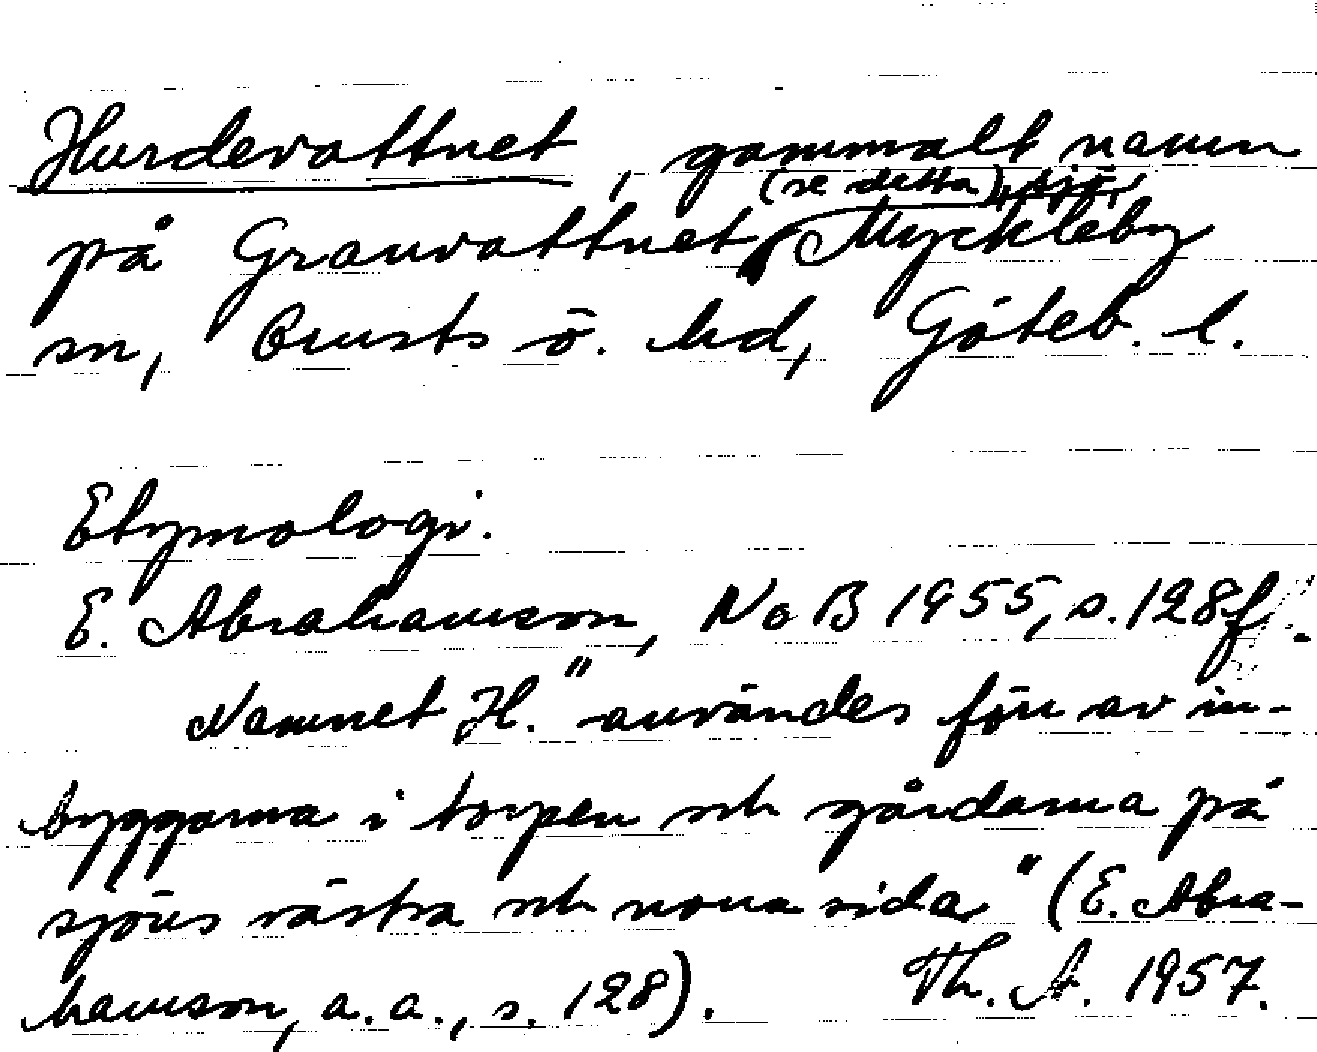 Hurdevattnet, gammalt namn
på Granvattnet (se detta), sjö, Myckleby
sn, Orusts ö. hd, Göteb. l.
Etymologi.
E. Abrahamson, NoB 1955, s. 128 f.
Namnet H. "användes förr av in-
byggarna i torpen och gårdarna på
sjöns västra och norra sida" (E. Abra-
hamson, a.a., s. 128). Th. A. 1957.